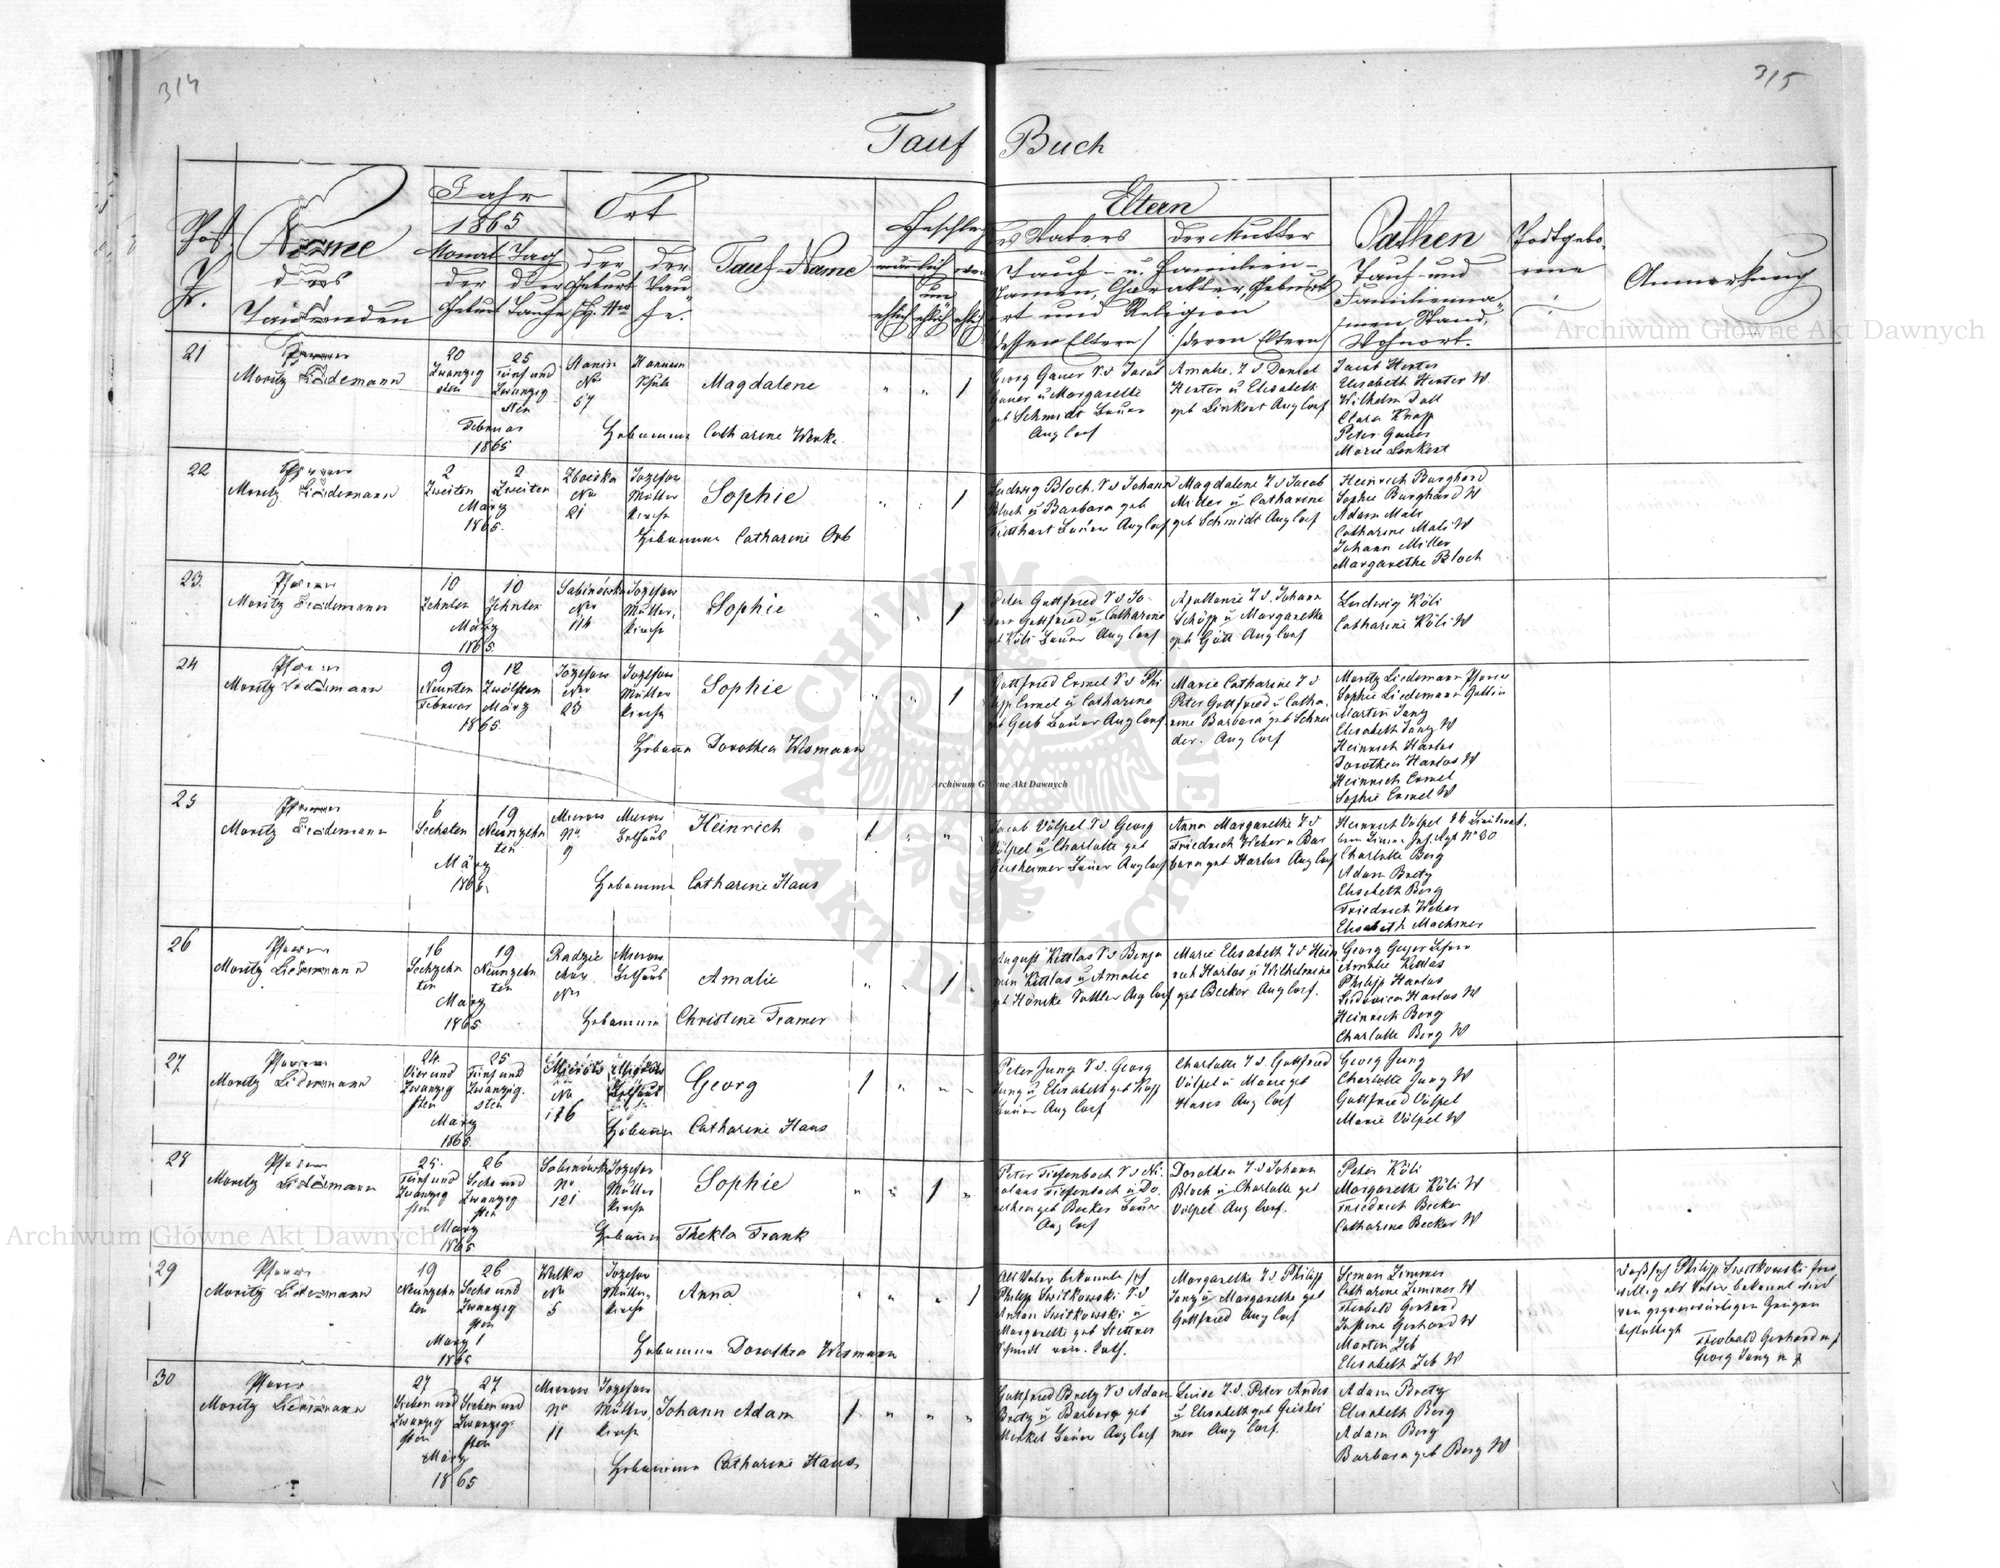 314
315
Tauf Buch
Jahr
1865
Ort
Eltern
Post
Nr.
Name
des
Taufenden
Monat Tag
der der
Geburt Taufe
der
Geburt
H. Nro
der
Taufe
Tauf-Name
Geschlecht
männlich
ehlich
des Vaters
der Mutter
Tauf- u. Familien-
Namen, Charakter, Geburts
ort und Religion
dessen Eltern
deren Eltern
Pathen
Tauf- und
Familienna-
men Stand,
Wohnort.
Todtgebo-
rene
Anmerkung
21
Pfarrer
Moritz Liedemann
20
Zwanzig
sten
25
Fünf und
Zwanzig
sten
Februar
1865
Hanin
No
57
Hannun
Schule
Magdalene
1
Hebamme Catharine Wenke
Georg Gauer S d Jacob
Gauer u Margarethe
geb Schmidt Bauer
Aug Conf
Amalie. T d Daniel
Herter u Elisabeth
geb Linkert Aug Conf
Jacob Herter
Elisabeth Herter W
Wilhelm Doll
Clara Knapp
Peter Gauer
Marie Lenkert
22
Pfarrer
Moritz Liedemann
2
Zweiten
2
Zweiten
März
1865.
Zboiska
No
21
Jozefow
Mutter
kirche
Sophie
1
Hebamme Catharine Orb
Ludwig Bloch. S d Johann
Bloch u Barbara geb
Bauer Aug Conf
Magdalene T d Jacob
Miller u Catharine
geb Schmidt Aug Conf
Heinrich Burghard
Sophie Burghard W
Adam Mali
Catharine Mali W
Johann Miller
Margarethe Bloch
23
Pfarrer
Moritz Liedemann
10
Zehnten
10
Zehnten
März
1865.
Sabinówka
Nro
116
Jozefow
Mutter,
kirche
Sophie
1
Peter Gottfried S d Jo-
Gottfried u Catharine
geb Köli Bauer Aug Conf
Apollonie T d. Johann
Schöpp u Margarethe
geb Gött Aug Conf
Ludwig Köli
Catharine Köli W
24
Pfarrer
Moritz Liedemann
9
Neunten
Februar
12
Zwölften
März
1865.
Jozefow
Nro
23
Jozefow
Mutter
kirche
Sophie
1
Hebamme Dorothea Wismann
Gottfried Ermel S d Phi
lipp Ermel u Catharine
geb Gerb Bauer Aug Conf.
Marie Catharine T d
Peter Gottfried u Catha.
rine Barbara geb Schnei
der. Aug Conf
Moritz Liedemann Pfarrer
Sophie Liedemann Gattin
Martin Jung
Elisabeth Jung W
Heinrich Harlos
Dorothea Harlos W
Heinrich Ermel
Sophie Ermel W
25
Pfarrer
Moritz Liedemann
6
Sechsten
19
Neunzehn
ten
März
1865.
Mierow
No.
9
Mierow
Bethaus
Heinrich
1
Hebamme Catharine Haus
Jacob Völpel S d Georg
Völpel u Charlotte geb
Geisheimer Bauer Aug Conf
Anna Margarethe T d
Friedrich Weber u Bar
bara geb Harlos Aug Conf
Heinrich Völpel
No 30
Charlotte Berg
Adam Bretz
Elisabeth Berg
Friedrich Weber
Elisabeth Machsner
26
Pfarrer
Moritz Liedemann
16
Sechzehn
ten
19
Neunzehn
ten
März
1865
Radzie
chow
Nro
Mierow
Bethaus
Amalie
1
Hebamme Christine Framer
August Kittlas S d Benja
min Kittlas u Amalie
geb Hönike Sattler Aug Conf
Marie Elisabeth T d Hein
rich Harlos u Wilhelmine
geb Becker Aug Conf.
Georg Geyer Lehrer
Amalie Kittlas
Philipp Harlos
Ludovica Harlos W
Heinrich Berg
Charlotte Berg W
27
Pfarrer
Moritz Liedemann
24
Vier und
Zwanzig
sten
25
Fünf und
Zwanzig.
sten
März
1865.
Mierow
No
186
Mierow
Bethaus
Georg
1
Hebamme Catharine Haus
Peter Jung S d. Georg
Jung u Elisabeth geb Kopp
Bauer Aug Conf
Charlotte T d Gottfried
Völpel u Marie geb
Hases Aug Conf
Georg Jung
Charlotte Jung W
Gottfried Völpel
Marie Völpel W
28
Pfarrer
Moritz Liedemann
25.
Fünf und
Zwanzig
sten
26
Sechs und
Zwanzig
sten
März
1865
Sabinówka
No
121
Jozefow
Mutter
kirche
Sophie
1
Hebamme Thekla Frank
Peter Tiefenbach S d Ni.
colaus Tiefenbach u Do.
rothea geb Becker Bauer
Aug Conf
Dorothea T d Johann
Bloch u Charlotte geb
Völpel Aug Conf.
Peter Köli
Margarethe Köli W
Friedrich Becker
Catharine Becker W
29
Pfarrer
Moritz Liedemann
19
Neunzehn
ten
26
Sechs und
Zwanzig
sten
März
1865
Wolka
No
5
Jozefow
Mutter,
kirche
Anna
1
Hebamme Dorothea Wismann
Als Vater bekannte sich
Philipp Switkowski S d
Anton Switkowski u
Margarethe geb Stettner
Schmidt röm. Cath.
Margarethe T d Philipp
Jung u Margarethe geb
Gottfried Aug Conf
Simon Zimmer
Catharine Zimmer W
Theobald Gerhard
Justine Gerhard W
Martin Zeb
Elisabeth Zeb W
Daß sich Philipp Switkowski frei
willig als Vater bekannt wird
von gegenwärtigen Zeugen
bestättigt
Theobald Gerhard
Georg Jung
30
Pfarrer
Moritz Liedemann
27
Sieben und
Zwanzig
sten
27
Sieben und
Zwanzig.
sten
März
1865
Mierow
No
11
Jozefow
Mutter,
kirche
Johann Adam
1
Hebamme Catharine Haus
Gottfried Bretz S d Adam
Bretz u Barbara geb
Merkel Bauer Aug Conf
Luise T d. Peter Andes
u Elisabeth geb Geishei
mer Aug Conf.
Adam Bretz
Elisabeth Berg
Adam Berg
Barbara geb Berg W
Archiwum Główne Akt Dawnych
Archiwum Główne Akt Dawnych
Archiwum Główne Akt Dawnych
ARCHIWUM GŁÓWNE AKT DAWNYCH